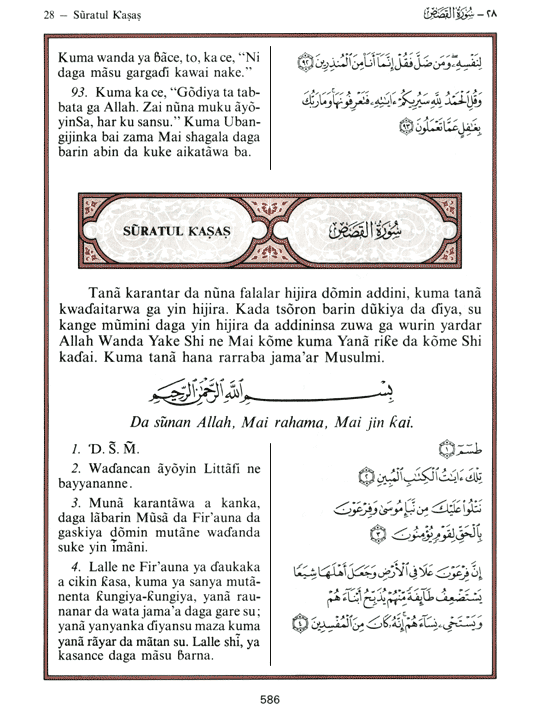 28 — Sūratul Ƙaṣaṣ
٢٨ — سُورَةُ القَصَصِ
Kuma wanda ya ɓāce, to, ka ce, “Ni
daga māsu gargaɗi kawai nake.”
93. Kuma ka ce, “Gōdiya ta tab-
bata ga Allah. Zai nūna muku āyō-
yinSa, har ku sansu.” Kuma Uban-
gijinka bai zama Mai shagala daga
barin abin da kuke aikatāwa ba.
لِنَفْسِهِۦ وَمَن ضَلَّ فَقُلْ إِنَّمَآ أَنَا۠ مِنَ ٱلْمُنذِرِينَ ٩٢
وَقُلِ ٱلْحَمْدُ لِلَّهِ سَيُرِيكُمْ ءَايَٰتِهِۦ فَتَعْرِفُونَهَا وَمَا رَبُّكَ
بِغَٰفِلٍ عَمَّا تَعْمَلُونَ ٩٣
SŪRATUL ƘAṢAṢ
سُورَةُ القَصَصِ
Tanã karantar da nūna falalar hijira dōmin addini, kuma tanã
kwaɗaitarwa ga yin hijira. Kada tsōron barin dūkiya da ɗiya, su
kange mūmini daga yin hijira da addininsa zuwa ga wurin yardar
Allah Wanda Yake Shi ne Mai kōme kuma Yanã riƙe da kōme Shi
kaɗai. Kuma tanã hana rarraba jama'ar Musulmi.
بِسْمِ ٱللَّهِ ٱلرَّحْمَٰنِ ٱلرَّحِيمِ
Da sūnan Allah, Mai rahama, Mai jin ƙai.
1. Ɗ. S̃. M̃.
2. Waɗancan āyōyin Littāfi ne
bayyananne.
3. Munã karantāwa a kanka,
daga lãbarin Mūsā da Fir'auna da
gaskiya dōmin mutāne waɗanda
suke yin ĩmāni.
4. Lalle ne Fir'auna ya ɗaukaka
a cikin ƙasa, kuma ya sanya mutā-
nenta ƙungiya-ƙungiya, yanã rau-
nanar da wata jama'a daga gare su;
yanã yanyanka ɗiyansu maza kuma
yanã rāyar da mātan su. Lalle shĩ, ya
kasance daga māsu ɓarna.
طسٓمٓ ١
تِلْكَ ءَايَٰتُ ٱلْكِتَٰبِ ٱلْمُبِينِ ٢
نَتْلُوا۟ عَلَيْكَ مِن نَّبَإِ مُوسَىٰ وَفِرْعَوْنَ
بِٱلْحَقِّ لِقَوْمٍ يُؤْمِنُونَ ٣
إِنَّ فِرْعَوْنَ عَلَا فِى ٱلْأَرْضِ وَجَعَلَ أَهْلَهَا شِيَعًا
يَسْتَضْعِفُ طَآئِفَةً مِّنْهُمْ يُذَبِّحُ أَبْنَآءَهُمْ
وَيَسْتَحْىِۦ نِسَآءَهُمْ إِنَّهُۥ كَانَ مِنَ ٱلْمُفْسِدِينَ ٤
586